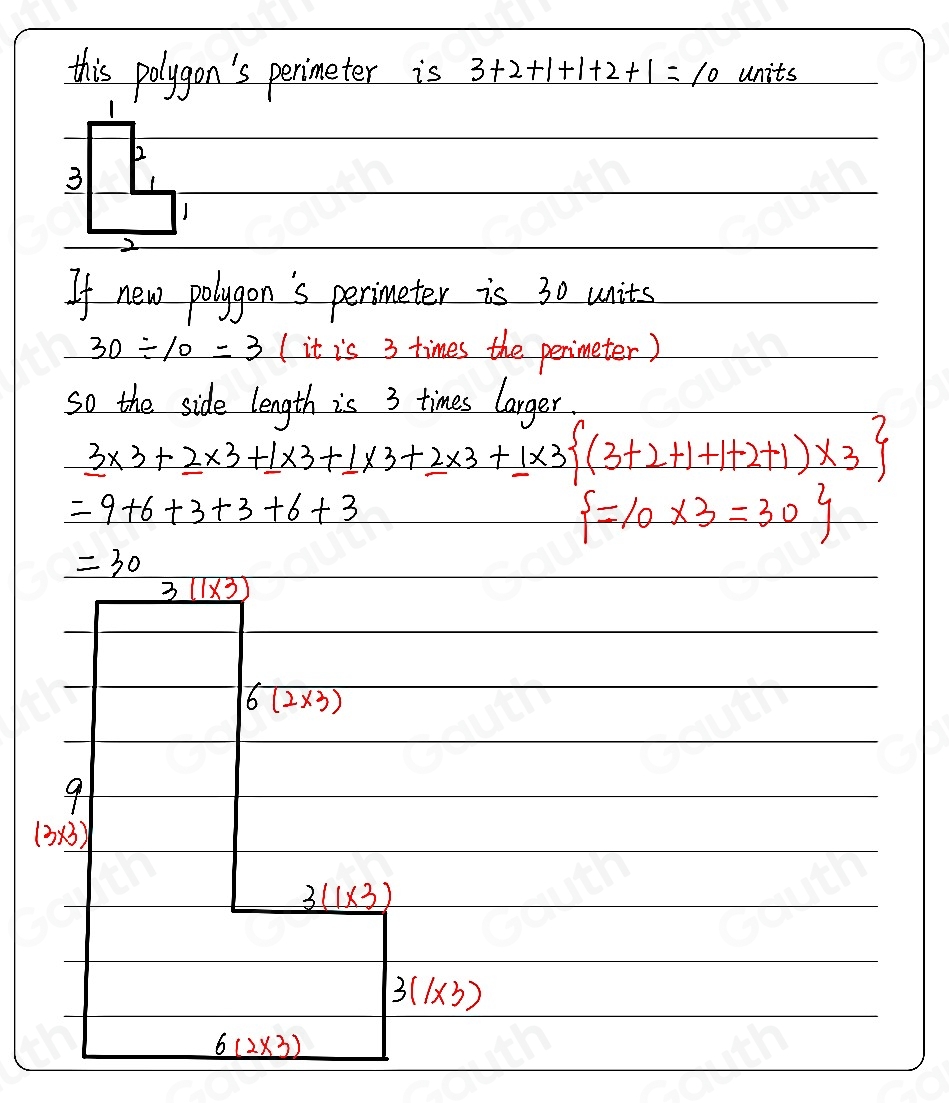 this polygon's perimeter is 3+2+1+1+2+1=10 units
1
2
3
1
1
2
If new polygon's perimeter is 30 units
30÷10=3 (it is 3 times the perimeter)
so the side length is 3 times larger.
3×3+2×3+1×3+1×3+2×3+1×3 {(3+2+1+1+2+1)×3}
=9+6+3+3+6+3 {=10×3=30}
=30
3 (1×3)
6 (2×3)
9
(3×3)
3 (1×3)
3 (1×3)
6 (2×3)
Gauth